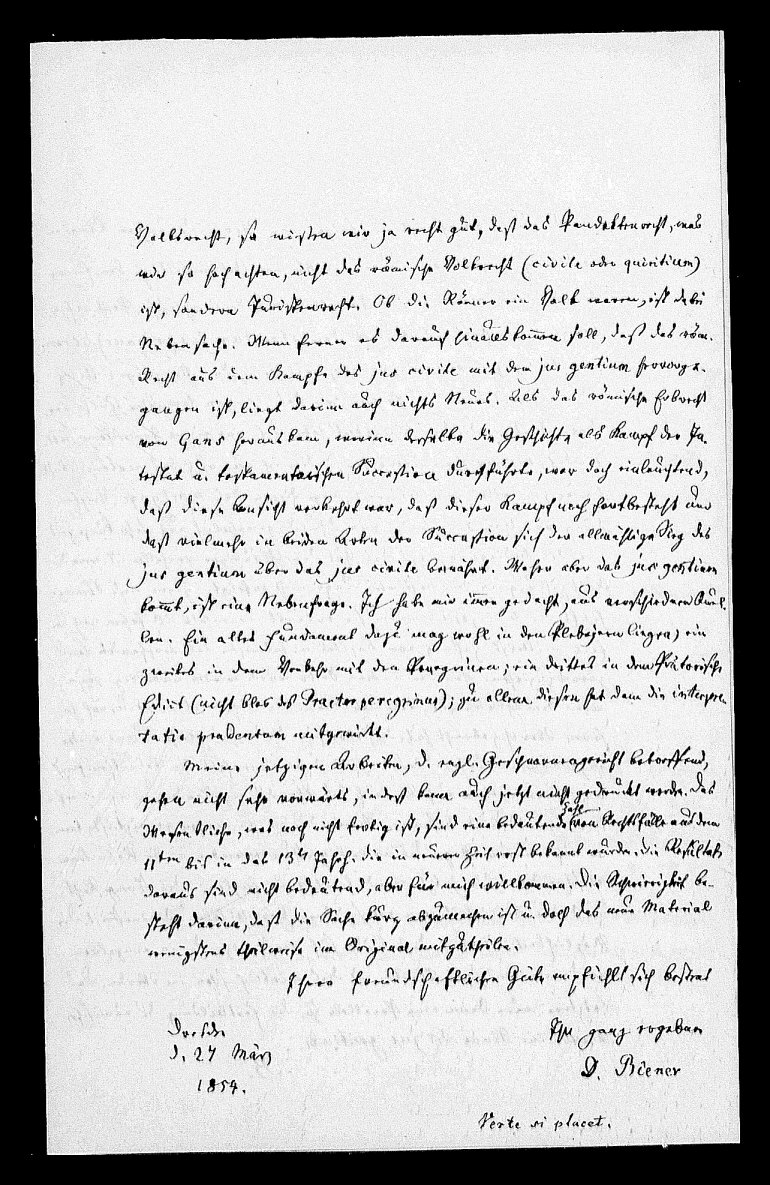 Volksrecht, so wissen wir ja recht gut, daß das Pandektenrecht, was
wir so hoch achten, nicht das römische Volksrecht (civile oder quiritium)
ist, sondern Juristenrecht. Ob die Römer ein Volk waren, ist dabei
Nebensache. Wenn ferner es darauf hinauskommen soll, daß das röm.
Recht aus dem Kampfe des jus civile mit dem jus gentium hervorge-
gangen ist, liegt darin auch nichts Neues. Als das römische Erbrecht
von Gans herauskam, worinn derselbe die Geschichte als Kampf der In-
testat u. testamentarischen Succession durchführte, war doch einleuchtend,
daß diese Ansicht verkehrt war, daß dieser Kampf noch fortbesteht und
daß vielmehr in beiden Arten der Succession sich der allmählige Sieg des
jus gentium über das jus civile bewährt. Woher aber das jus gentium
kommt, ist eine Nebenfrage. Ich habe mir immer gedacht, aus verschiedenen Quel-
len. Ein altes Fundament dazu mag wohl in den Plebejern liegen, ein
zweites in dem Verkehr mit den Peregrinen, ein drittes in dem Prätorischen
Edict (nicht blos des Praetor peregrinus); zu allem diesen hat dann die interpre
tatio prudentum mitgewirkt.
Meine jetzigen Arbeiten, d. engl. Geschwornengericht betreffend,
gehen nicht sehr vorwärts, indeß kann auch jetzt nicht gedruckt werden. Das
Wesentliche, was noch nicht fertig ist, sind eine bedeutende Zahl von Rechtsfällen aus dem
11ten bis in das 13te Jahrh. die in neuerer Zeit erst bekannt wurden. Die Resultate
daraus sind nicht bedeutend, aber für mich willkommen. Die Schwierigkeit be-
steht darinn, daß die Sache kurz abzumachen ist u. doch das neue Material
wenigstens theilweise im Original mitzutheilen.
Ihrer freundschaftlichen Güte empfiehlt sich bestens
Dresden
d. 27 März
1854.
Ihr ganz ergebener
D. Biener
Verte si placet.